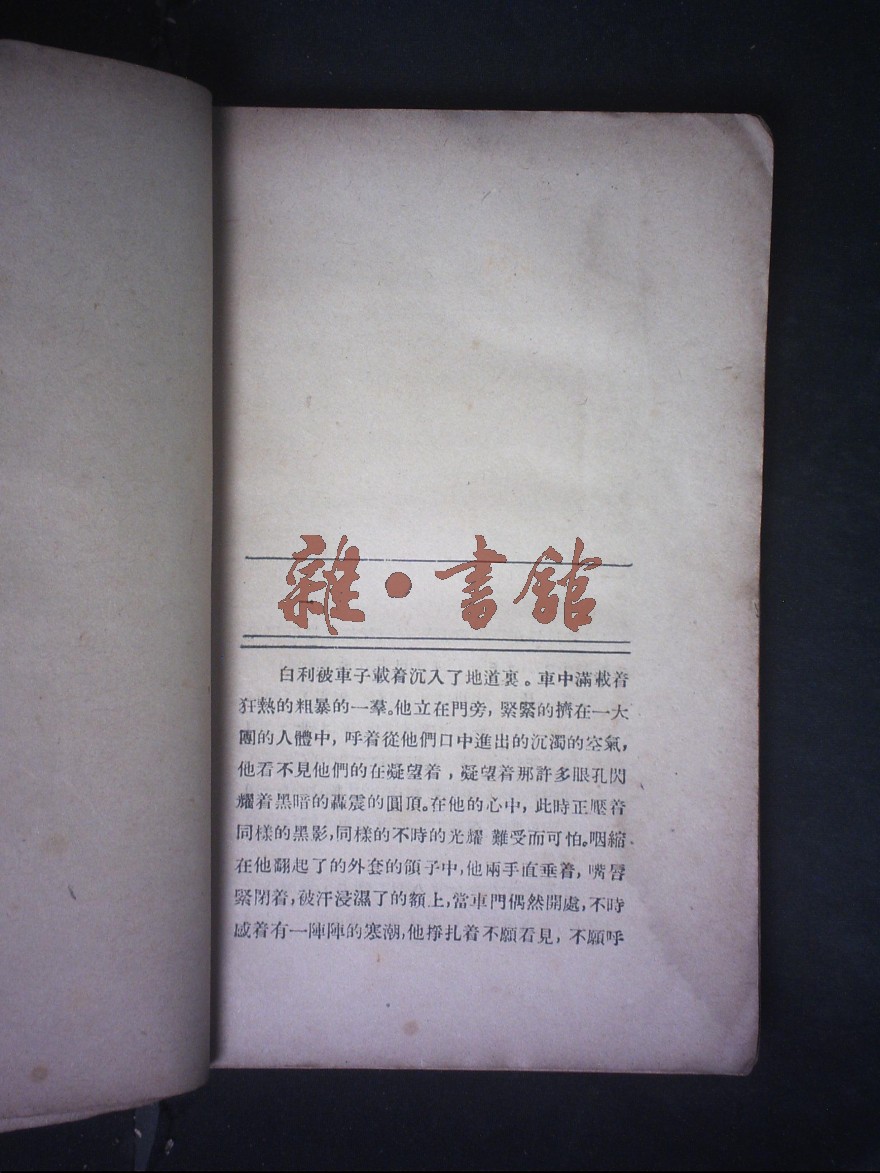 雜·書館
白利被車子載着沉入了地道裏。車中滿載着
狂熱的粗暴的一羣。他立在門旁，緊緊的擠在一大
團的人體中，呼着從他們口中進出的沉濁的空氣，
他看不見他們的在凝望着，凝望着那許多眼孔閃
耀着黑暗的轟震的圓頂。在他的心中，此時正壓着
同樣的黑影，同樣的不時的光耀 難受而可怕。咽縮
在他翻起了的外套的領子中，他兩手直垂着，嘴唇
緊閉着，被汗浸濕了的額上，當車門偶然開處，不時
感着有一陣陣的寒潮，他掙扎着不願看見，不願呼